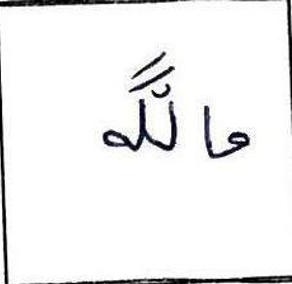 ماللًّه